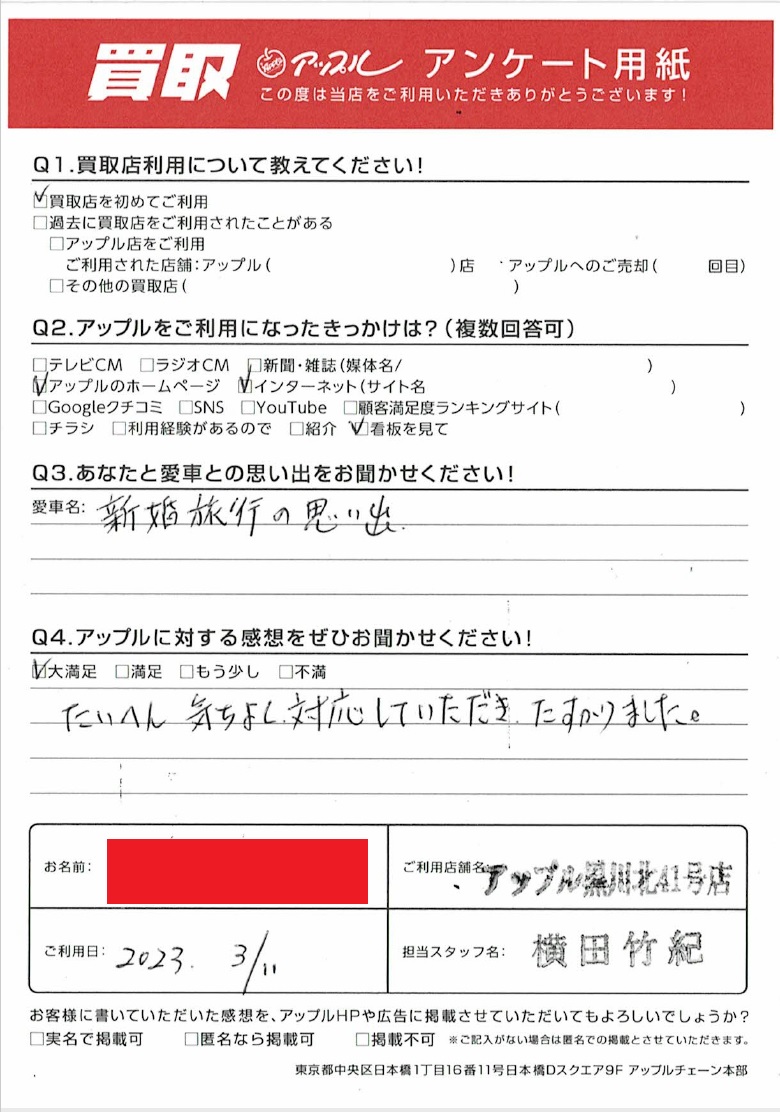 買取 アップル アンケート用紙
この度は当店をご利用いただきありがとうございます!
Q1.買取店利用について教えてください!
☑買取店を初めてご利用
□過去に買取店をご利用されたことがある
□アップル店をご利用
ご利用された店舗:アップル( )店 アップルへのご売却( 回目)
□その他の買取店( )
Q2.アップルをご利用になったきっかけは?(複数回答可)
□テレビCM □ラジオCM □新聞・雑誌(媒体名/ )
☑アップルのホームページ ☑インターネット(サイト名 )
□Googleクチコミ □SNS □YouTube □顧客満足度ランキングサイト( )
□チラシ □利用経験があるので □紹介 ☑看板を見て
Q3.あなたと愛車との思い出をお聞かせください!
愛車名: 新婚旅行の思い出.
Q4.アップルに対する感想をぜひお聞かせください!
☑大満足 □満足 □もう少し □不満
たいへん 気もちよく対応していただき たすかりました。
お名前:
ご利用店舗名 アップル黒川北41号店
ご利用日: 2023. 3/11
担当スタッフ名: 横田竹紀
お客様に書いていただいた感想を、アップルHPや広告に掲載させていただいてもよろしいでしょうか?
□実名で掲載可 □匿名なら掲載可 □掲載不可 ※ご記入がない場合は匿名での掲載とさせていただきます。
東京都中央区日本橋1丁目16番11号日本橋Dスクエア9F アップルチェーン本部